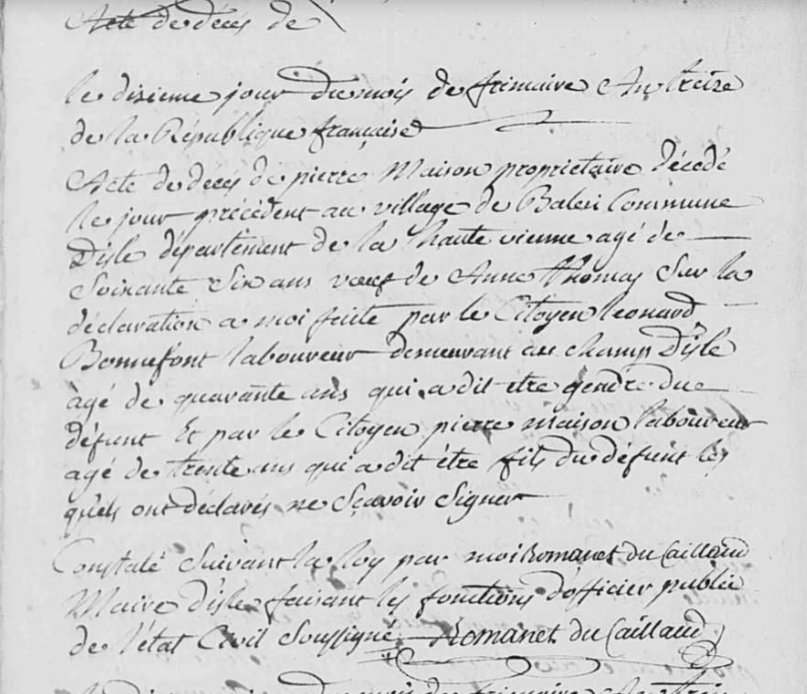 Acte de décès de
le dixieme jour du mois de frimaire An treize
de la République française
Acte de décès de pierre Maison propriétaire décédé
le jour précédent au village de Balezi Commune
Disle département de la haute vienne agé de
Soixante Six ans vœuf de Anne thomas Sur la
déclaration a moi faite par le Citoyen leonard
Bonnefont laboureur demeurant au champ Disle
agé de quarante ans qui a dit être gendre du
défunt Et par le Citoyen pierre maison laboureur
agé de trente ans qui a dit être fils du défunt les
quels ont déclarés ne Sçavoir Signer
Constaté Suivant la loy par moi Romanet du Caillaud
Maire disle faisant les fonctions d'officier public
de l'état Civil Soussigné Romanet du Caillaud